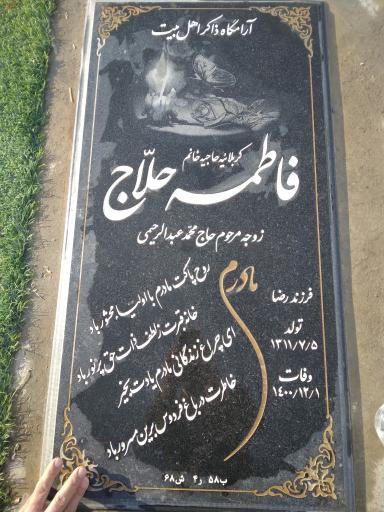 آرامگاه ذاکر اهل بیت
کربلائیه حاجیه خانم
فاطمه حلاّج
زوجه مرحوم حاج محمد عبدالرحیمی
فرزند رضا
تولد
۱۳۱۱/۷/۵
وفات
۱۴۰۰/۱۲/۱
مادرم
روح پاکت مادرم با اولیا محشور باد
خانه قبرت ز لطف ذات حق پر نور باد
ای چراغ زندگانی مادرم یادت بخیر
خاطرت در باغ فردوس برین مسرور باد
ب۵۸ ر۴ ش۶۸